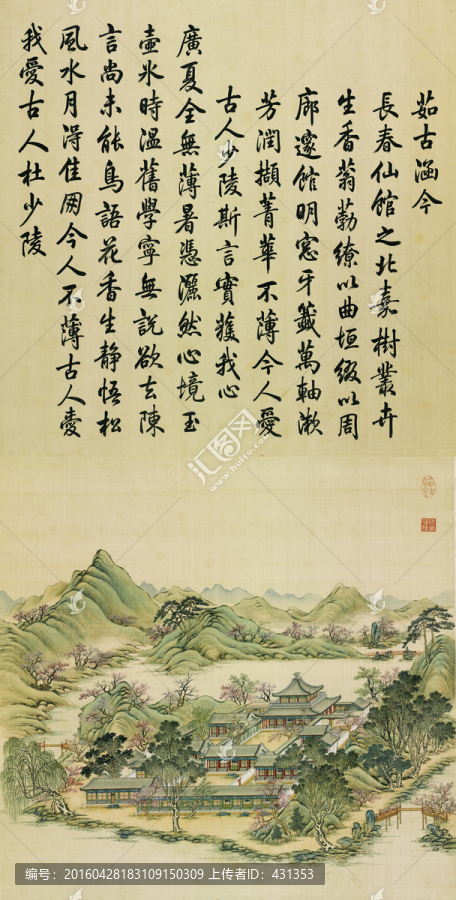 茹古涵今
長春仙館之北嘉樹叢卉
生香蓊葧繚以曲垣綴以周
廊邃館明窓牙籤萬軸漱
芳潤擷菁華不薄今人愛
古人少陵斯言實獲我心
廣夏全無薄暑憑灑然心境玉
壺冰時溫舊學寧無說欲去陳
言尚未能鳥語花香生静悟松
風水月淂佳朋今人不薄古人愛
我愛古人杜少陵
汇图网
www.huitu.com
编号:20160428183109150309 ID: 431353